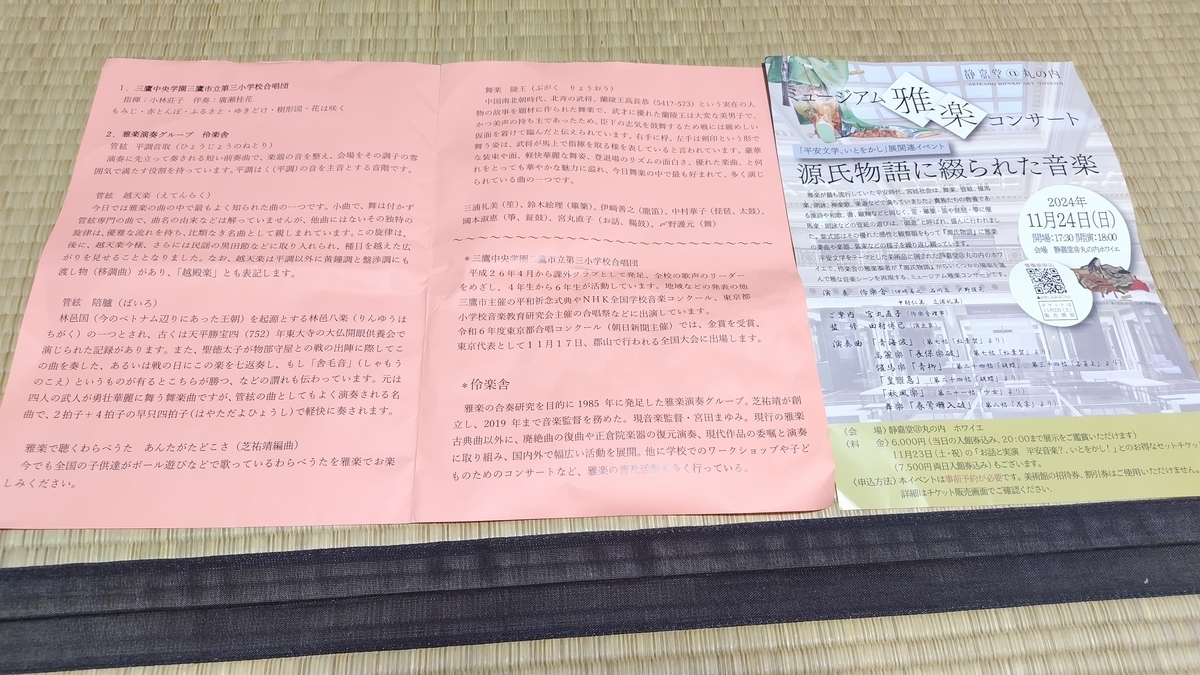 1．三鷹中央学園三鷹市立第三小学校合唱団
指揮：小林荘子　伴奏：廣瀬桂花
もみじ・赤とんぼ・ふるさと・ゆきどけ・樹形図・花は咲く
2．雅楽演奏グループ　伶楽舎
管絃　平調音取（ひょうじょうのねとり）
演奏に先立って奏される短い前奏曲で、楽器の音を整え、会場をその調子の雰
囲気で満たす役割を持っています。平調はミ（平調）の音を主音とする音階です。
管絃　越天楽（えてんらく）
今日では雅楽の曲の中で最もよく知られた曲の一つです。小曲で、舞は付かず
管絃専門の曲で、曲名の由来などは解っていませんが、他曲にはないその独特の
旋律は、優雅な流れを持ち、比類なき名曲として親しまれています。この旋律は、
後に、越天楽今様、さらには民謡の黒田節などに取り入れられ、種目を越えた広
がりを見せることとなりました。なお、越天楽は平調以外に黄鐘調と盤渉調にも
渡し物（移調曲）があり、「越殿楽」とも表記します。
管絃　陪臚（ばいろ）
林邑国（今のベトナム辺りにあった王朝）を起源とする林邑八楽（りんゆうは
ちがく）の一つとされ、古くは天平勝宝四（752）年東大寺の大仏開眼供養会で
演じられた記録があります。また、聖徳太子が物部守屋との戦の出陣に際してこ
の曲を奏した、あるいは戦の日にこの楽を七返奏し、もし「舎毛音」（しゃもう
のこえ）というものが有るとこちらが勝つ、などの謂れも伝わっています。元は
四人の武人が勇壮華麗に舞う舞楽曲ですが、管絃の曲としてもよく演奏される名
曲で、2拍子＋4拍子の早只四拍子（はやただよひょうし）で軽快に奏されます。
雅楽で聴くわらべうた　あんたがたどこさ（芝祐靖編曲）
今でも全国の子供達がボール遊びなどで歌っているわらべうたを雅楽でお楽
しみください。
舞楽　陵王（ぶがく　りょうおう）
中国南北朝時代、北斉の武将、蘭陵王高長恭（541?-573）という実在の人
物の故事を題材に作られた舞楽で、武才に優れた蘭陵王は大変な美男子で、
かつ美声の持ち主であったため、臣下の志気を鼓舞するため戦には厳めしい
仮面を着けて臨んだと伝えられています。右手に桴、左手は剣印という形で
舞う姿は、武将が馬上で指揮を取る様を表していると言われています。豪華
な装束や面、軽快華麗な舞姿、登退場のリズムの面白さ、優れた楽曲、と何
れをとっても華やかな魅力に溢れ、今日舞楽の中で最も好まれて、多く演じ
られている曲の一つです。
三浦礼美（笙）、鈴木絵理（篳篥）、伊﨑善之（龍笛）、中村華子（琵琶、太鼓）、
國本淑恵（箏、鉦鼓）、宮丸直子（お話、鞨鼓）／野護元（舞）
＊三鷹中央学園三鷹市立第三小学校合唱団
平成２６年４月から課外クラブとして発足、全校の歌声のリーダー
をめざし、４年生から６年生が活動しています。地域などでの発表の他
三鷹市主催の平和祈念式典やNHK全国学校音楽コンクール、東京都
小学校音楽教育研究会主催の合唱祭などに出演しています。
令和６年度東京都合唱コンクール（朝日新聞主催）では、金賞を受賞、
東京代表として１１月１７日、郡山で行われる全国大会に出場します。
＊伶楽舎
雅楽の合奏研究を目的に 1985 年に発足した雅楽演奏グループ。芝祐靖が創
立し、2019 年まで音楽監督を務めた。現音楽監督・宮田まゆみ。現行の雅楽
古典曲以外に、廃絶曲の復曲や正倉院楽器の復元演奏、現代作品の委嘱と演奏
に取り組み、国内外で幅広い活動を展開。他に学校でのワークショップや子ど
ものためのコンサートなど、雅楽の普及活動も多く行っている。
静嘉堂@丸の内
ミュージアム 雅楽 コンサート
「平安文学、いとをかし」展関連イベント
源氏物語に綴られた音楽
2024年
11月24日(日)
開場：17:30 開演：18:00
会場　静嘉堂@丸の内ホワイエ
ご案内　宮丸直子（伶楽舎理事）
監修　田村博巳（演出家）
演奏曲　「青海波」（第七帖「紅葉賀」より）
高麗楽「長保楽破」
催馬楽「青柳」
「皇麞急」（第二十四帖「胡蝶」より）
「秋風楽」（第二十一帖「少女」より）
舞楽「春鶯囀入破」（第八帖「花宴」より）
（会　場）静嘉堂@丸の内　ホワイエ
（料　金）6,000円（当日の入館券込み、20:00まで展示をご鑑賞いただけます）
11月23日（土・祝）の「お話と実演　平安音楽?、いとをかし！」とのお得なセットチケ
(7,500円両日入館券込み)もございます。
（申込方法）本イベントは事前予約が必要です。美術館の招待券、割引券はご使用いただけません。
詳細はチケット販売画面でご確認ください。